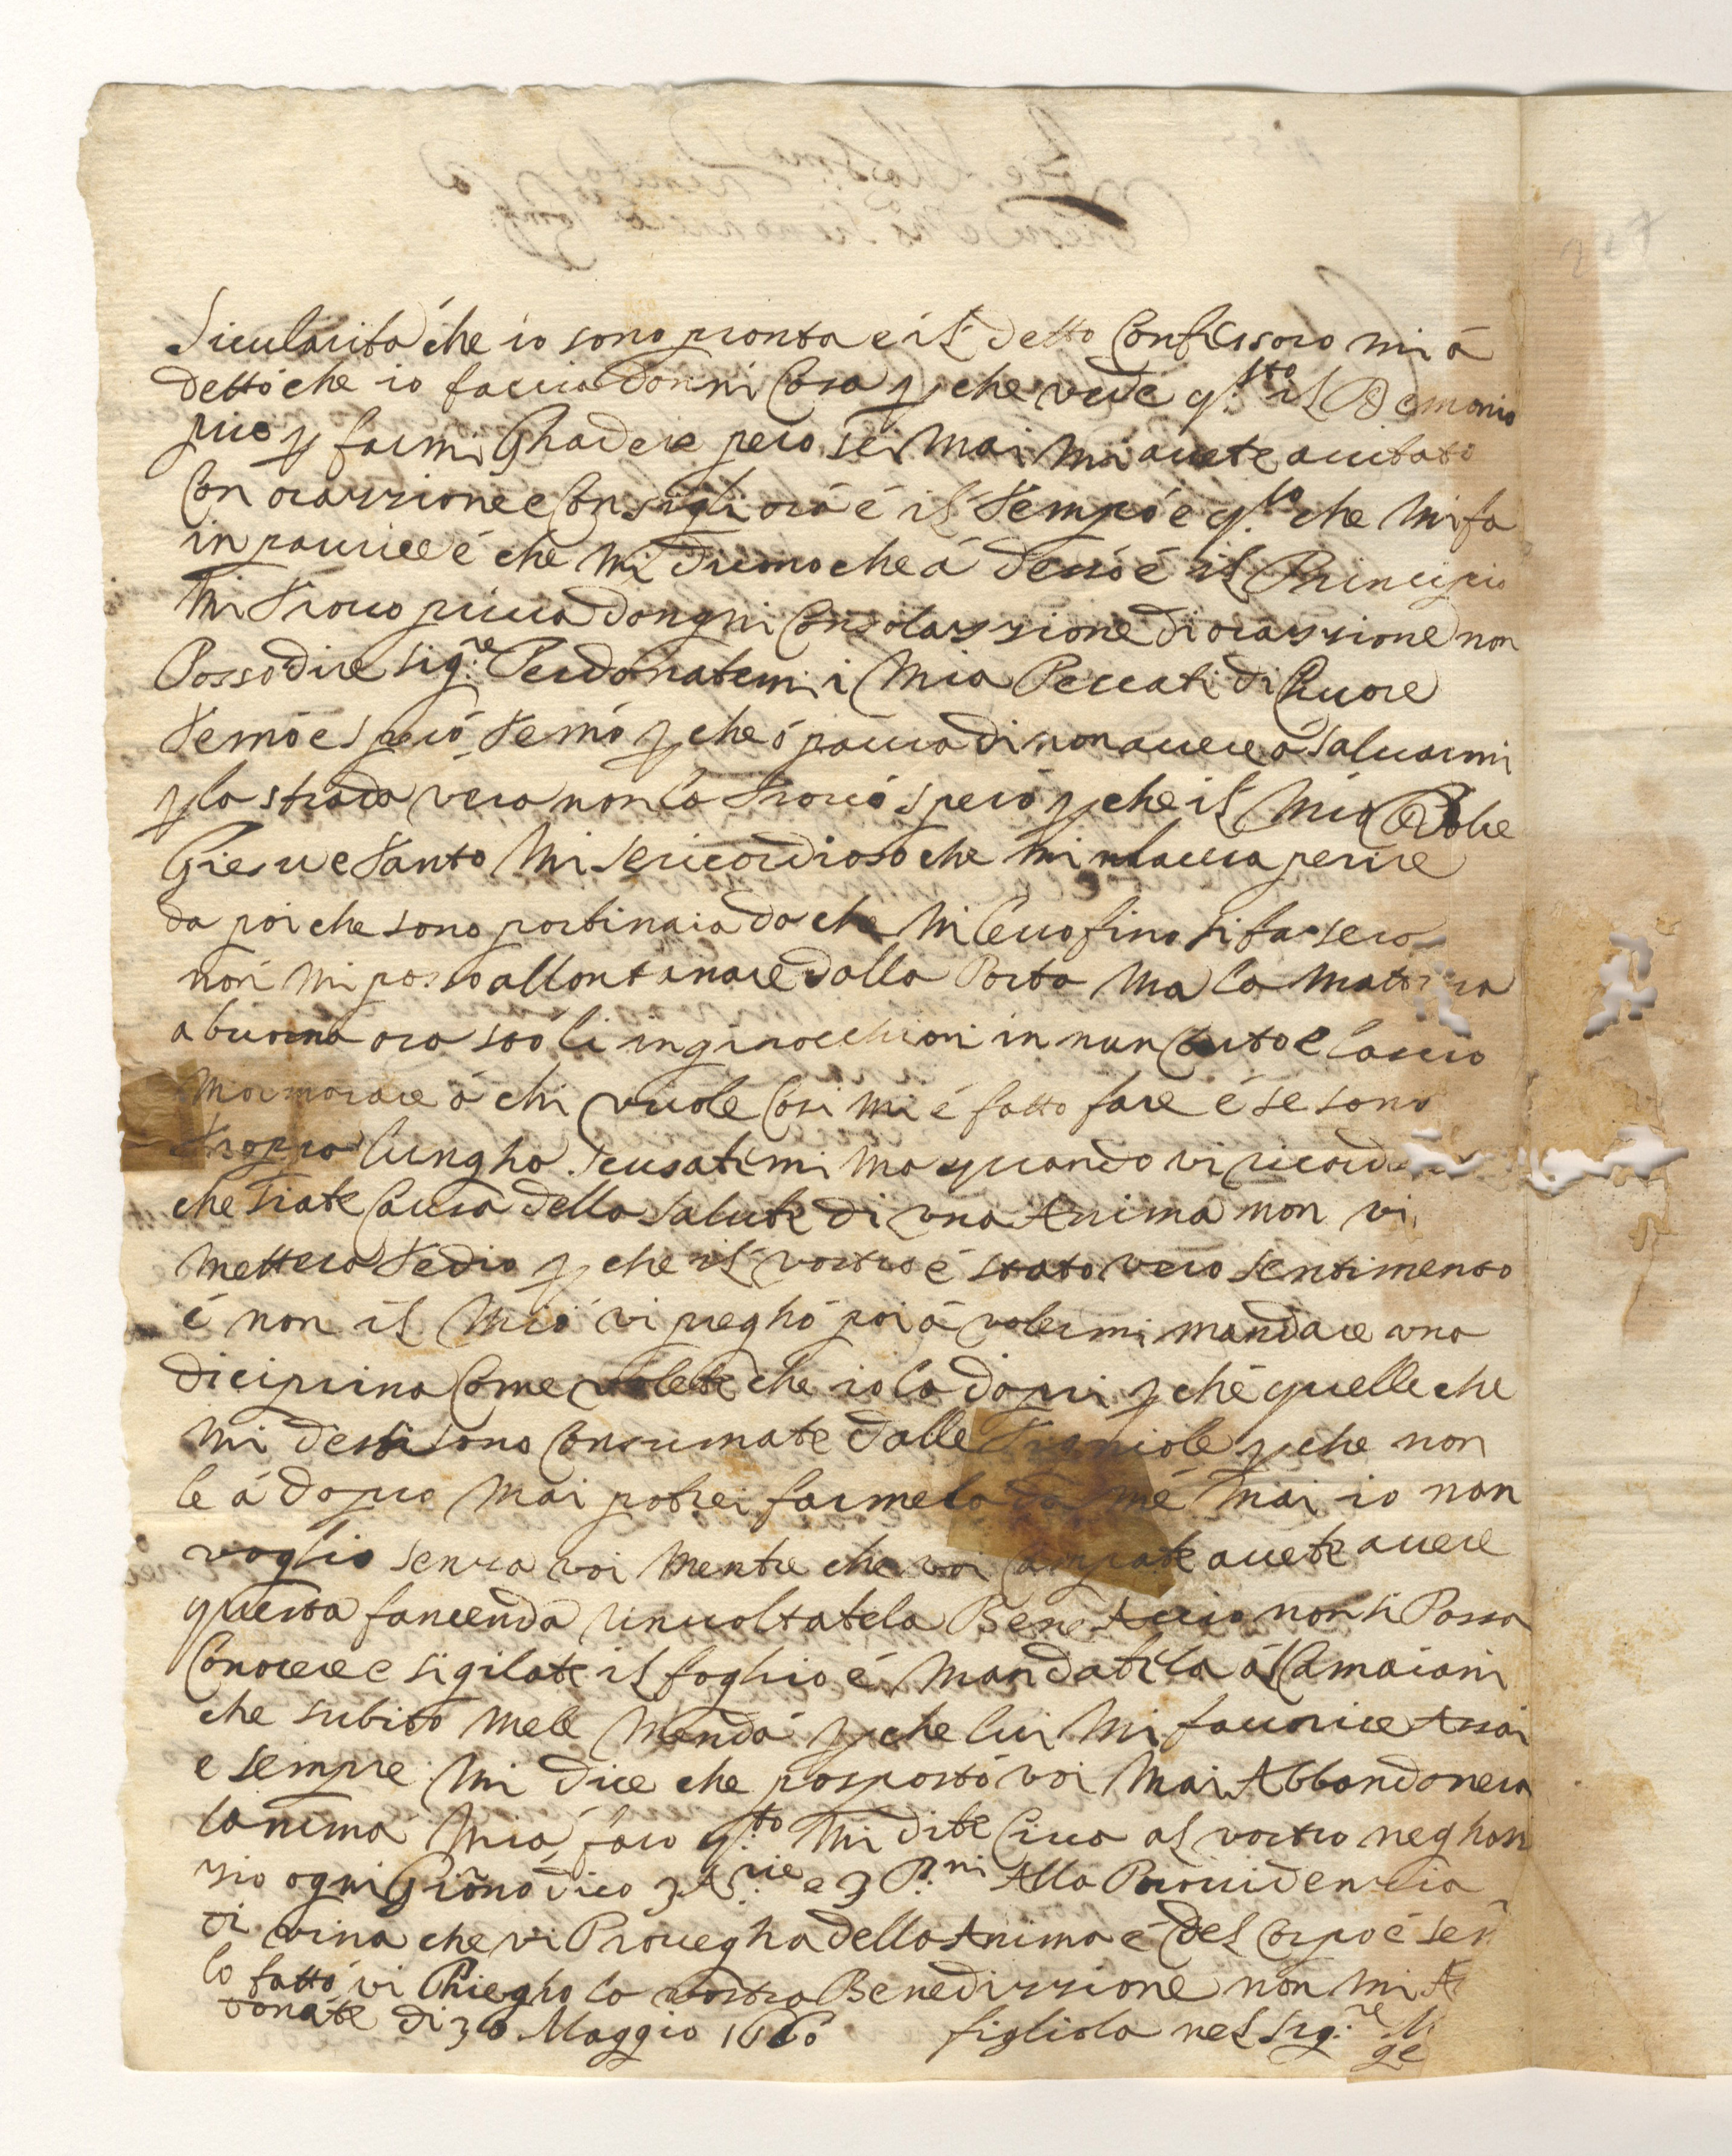 sicularita che io sono pronta e il detto Confessoro mi á
detto che io faccia donni Cosa p che vede q.sto il Demonio
puo p farmi Ghadere pero sei mai mi avete auitato
Con orazzione e Consigli ora é il tempó e q.to che mi fa
in paurire é che mi dicano che á desso é il Principio
mi trovo priva dongni Consolazzione di orazzione non
Posso dire sig.re Perdonatemi i Mia Peccati di Cuore
temo e speró temó p che ó paura di non avere á salvarmi
p la strada vera non la trovó speró p che il Mió
Giesu e tanto Misericordioso che mi lascia perire
da poi che sono portinaia da che mi levo fino si fa sera
non mi posso allontanare dalla Porta ma la mattina
a buona ora sto li inginocchioni in nun Canto e lascio
mormorare á chi vuole Cosi mi é fatto fare é se sono
troppa lungha scusatemi ma quando vi ricord
che siate Causa della salute di una Anima non vi
mettera tedio p che il vostro é stato vero sentimento
é non il Mió vi preghó poi á volermi mandare una
diciprina Come volete che io la dopri p ché quelle che
mi desti sono Consumate dalle Tigniole p che non
le á dopro mai potrei farmela da mé mai io non
voglio senza voi mentre che voi Campate avete avere
questa fancenda rinvoltatela Bene Accio non si Possa
Conocere e sigilate il foghio é Mandatela ál Camaiani
che subito mele manda p che lui mi favorice Assai
e sempre mi dice che posposto voi mai Abbandonera
lanima Mia, faro q.to mi dite Circa al vostro neghon
zio ogni Giorno dico 3 A.rie e 3 P.ri Alla Providenzia
di vina che vi Provegha della Anima é del Corpo é sen
lo fatto vi Priegho la vostra Benedizzione non mi A
donate di 30 Maggio figliola nel sig.re M
ge